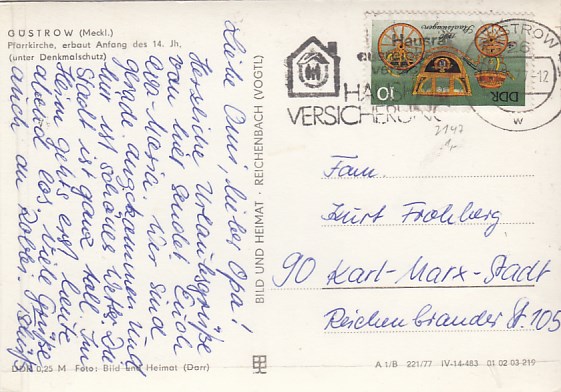 GÜSTROW (Meckl.)
Pfarrkirche, erbaut Anfang des 14. Jh.
(unter Denkmalschutz)
Liebe Omi, lieber Opa!
Herzliche Urlaubsgrüße
von hier sendet Euch
Eva-Maria. Wir sind
gerade angekommen und
hier ist schönes Wetter. Die
Stadt ist ganz toll. Im
Heim gehts erst heute
abend los. Viele Grüße
auch an
BILD UND HEIMAT · REICHENBACH (VOGTL)
Hausrat
HA
VERSICHERUNG
GÜSTROW
26
77-12
w
DDR
10
2147
Fam.
Kurt Frohberg
90 Karl-Marx-Stadt
Reichenbrander St. 105
DDR 0,25 M Foto: Bild und Heimat (Darr)
A 1/B 221/77 IV-14-483 01 02 03 219